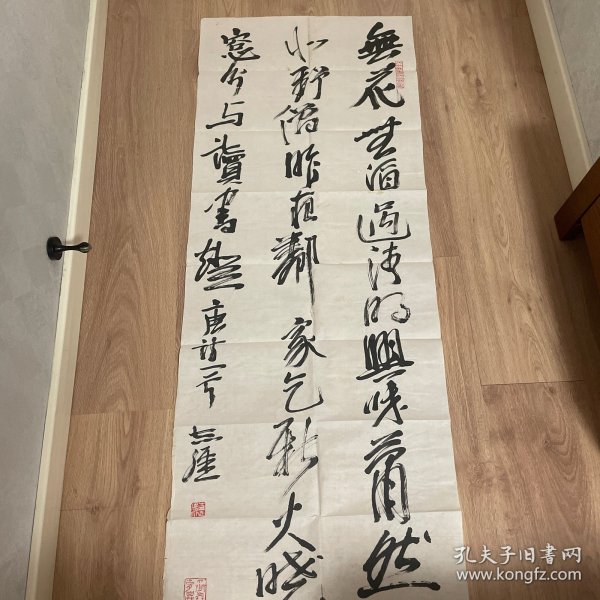 無花無酒過清明興味蕭然
似野僧昨夜鄰家乞新火曉
窓分与讀書燈 唐詩一首
孔夫子旧書网
www.kongfz.com